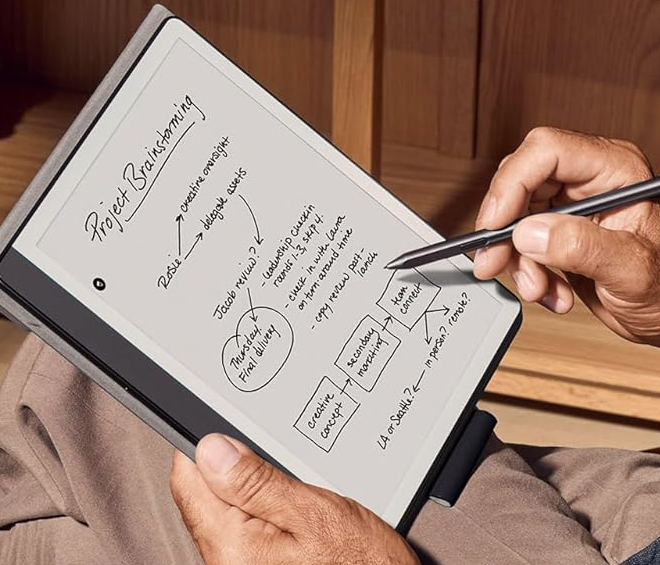 Project Brainstorming
Rosie
creative oversight
delegate assets
Jacob review?
- leadership check in
rounds 1-3, skip 4.
- check in with Laura
on turn-around time
- copy review post-
launch
Thursday,
Final delivery
creative
concept
secondary
team
connect
in person?
remote?
LA or Seattle?